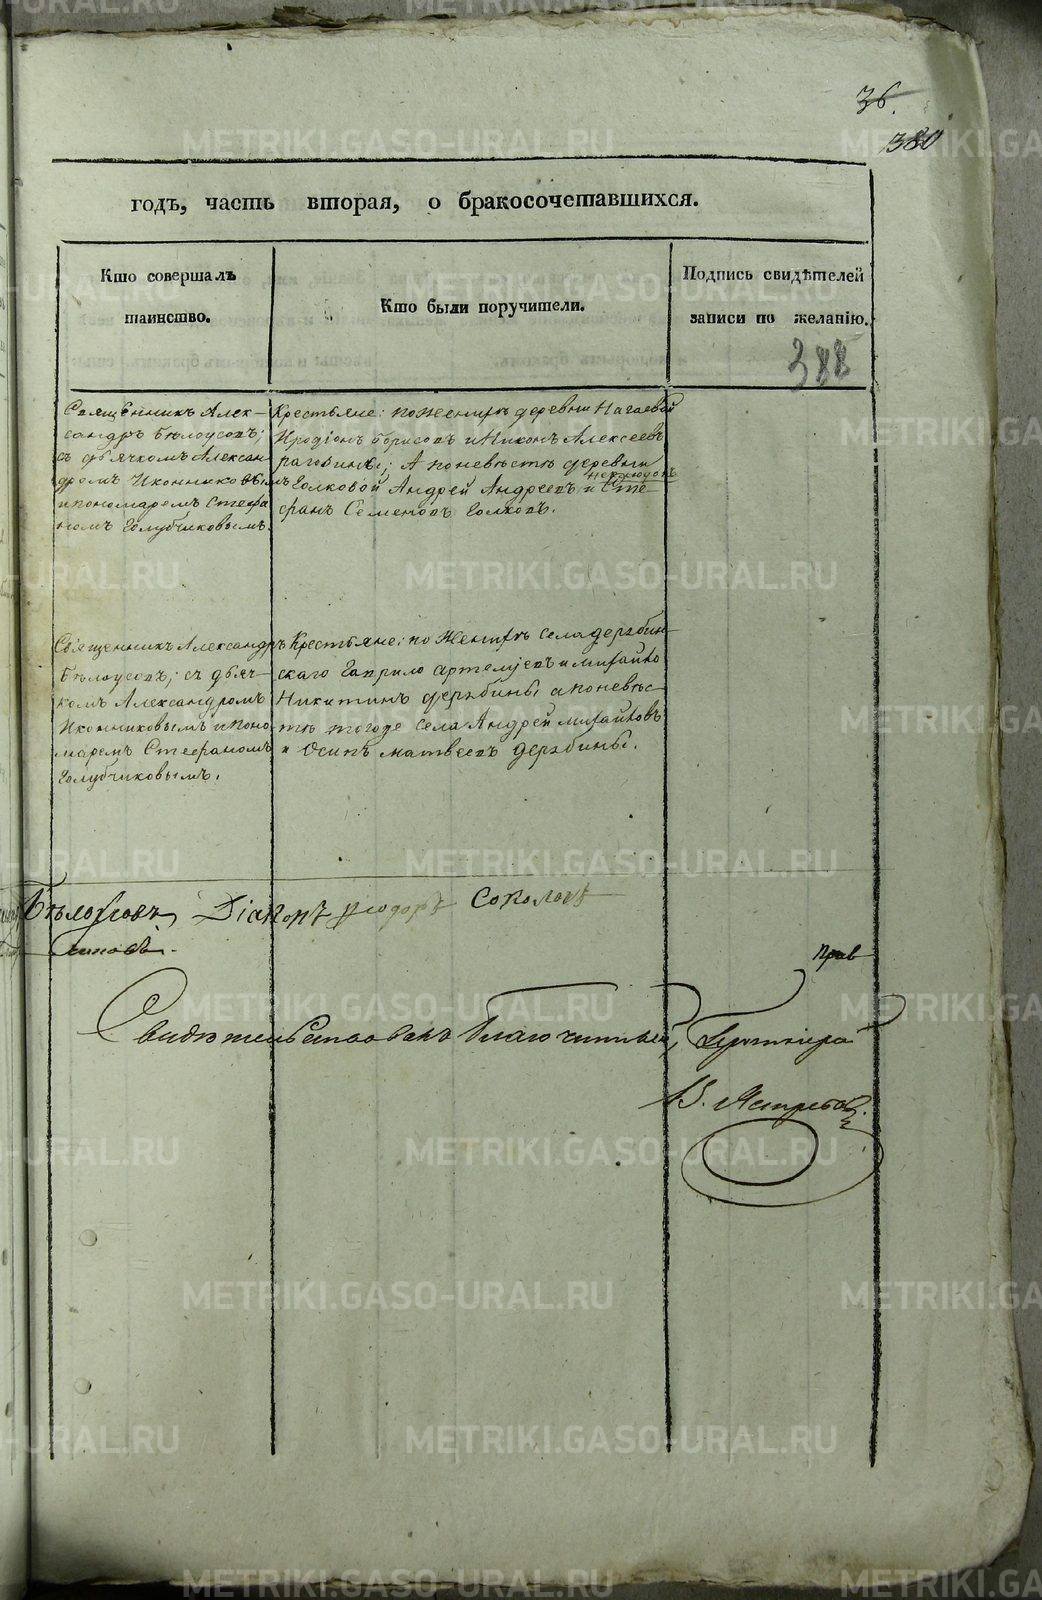 36.
380
годъ, часть вторая, о бракосочетавшихся.
Кто совершалъ
таинство.
Кто были поручители.
Подпись свидѣтелей
записи по желанію.
388
Священникъ Алек-
сандръ Бѣлоусовъ;
съ дьячкомъ Алексан
дромъ Иконниковымъ
и пономаремъ Стефа
номъ Голубчиковымъ.
Крестьяне: по женихѣ деревни Нагаевой
Иродіонъ Борисовъ и Никонъ Алексеевъ
А по невѣстѣ деревни
Волковой Андрей Андреевъ и Сте-
фанъ Семеновъ Волковъ.
Священникъ Александръ
Бѣлоусовъ; съ дьяч-
комъ Александромъ
Иконниковымъ и поно-
маремъ Стефаномъ
Голубчиковымъ.
Крестьяне: по женихѣ села дерябин-
скаго Гаврило артемьевъ и михайло
Никитинъ дерябины а по невѣс-
тѣ тогоже села Андрей михайловъ
и Осипъ матвеевъ дерябины.
Бѣлоусовъ, Діаконъ Ѳеодоръ Соколовъ
Свидѣтельствовалъ Благочинный, Протоіерей
В. Ястребовъ.
METRIKI.GASO-URAL.RU